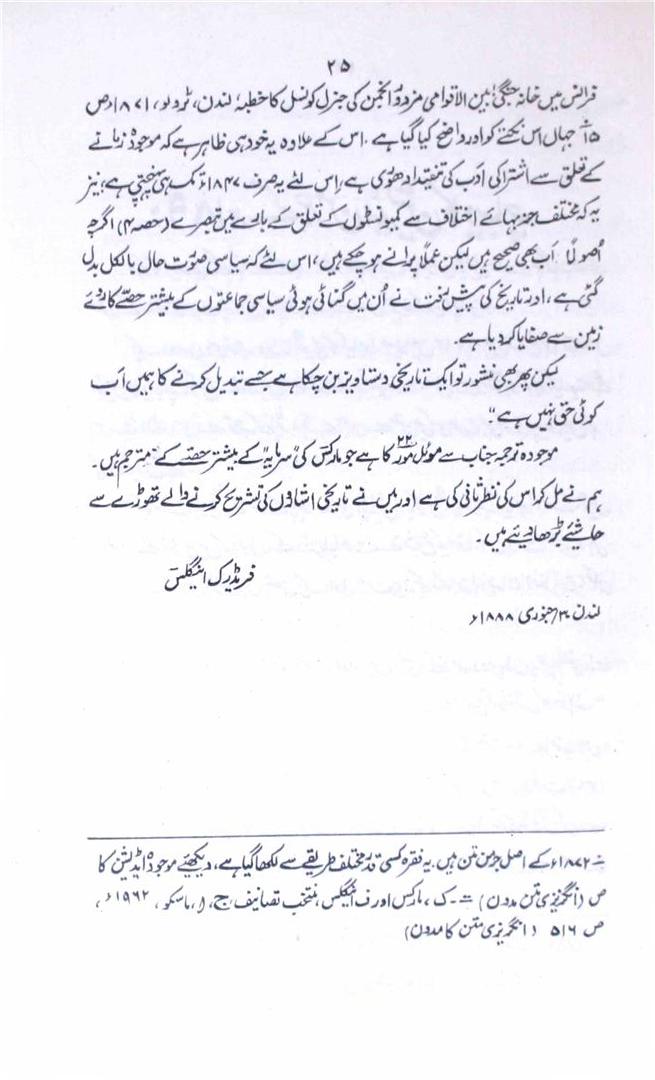 ۲۵
فرانس میں خانہ جنگی، بین الاقوامی مزدور انجمن کی جنرل کونسل کا خطبہ، لندن، ٹرولو، ۱۸۷۱ء ص
۱۵ جہاں اس نکتے کو اور واضح کیا گیا ہے۔ اس کے علاوہ یہ خود ہی ظاہر ہے کہ موجودہ زمانے
کے تعلق سے اشتراکی ادب کی تنقید ادھوری ہے، اس لئے یہ صرف ۱۸۴۷ء تک ہی پہنچتی ہے؛ نیز
یہ کہ مختلف حزب ہائے اختلاف سے کمیونسٹوں کے تعلق کے بارے میں تبصرے (حصہ ۴) اگرچہ
اصولاً اب بھی صحیح ہیں لیکن عملاً پرانے ہو چکے ہیں، اس لئے کہ سیاسی صورت حال بالکل بدل
گئی ہے، اور تاریخ کی پیش رفت نے اُن میں گنائی ہوئی سیاسی جماعتوں کے بیشتر حصّے کا روئے
زمین سے صفایا کر دیا ہے۔
لیکن پھر بھی منشور تو ایک تاریخی دستاویز بن چکا ہے جسے تبدیل کرنے کا ہمیں اَب
کوئی حق نہیں ہے"
موجودہ ترجمہ جناب سے موئل مور۲۲ کا ہے جو مارکس کی "سرمایہ" کے بیشتر حصّے کے مترجم ہیں۔
ہم نے مل کر اس کی نظرثانی کی ہے اور میں نے تاریخی اشاروں کی تشریح کرنے والے تھوڑے سے
حاشئے بڑھا دیئے ہیں۔
فریڈرک اینگلس
لندن ۳۰/ جنوری ۱۸۸۸ء
۱۸۷۲ء کے اصل جرمن متن میں۔ یہ فقرہ کسی قدر مختلف طریقے سے لکھا گیا ہے، دیکھئے موجودہ ایڈیشن کا
ص (انگریزی متن مدون) ک، مارکس اور ف اینگلس، منتخب تصانیف، ج، ا، ماسکو، ۱۹۶۲ء،
ص ۵۱۶ (انگریزی متن کا مدون)